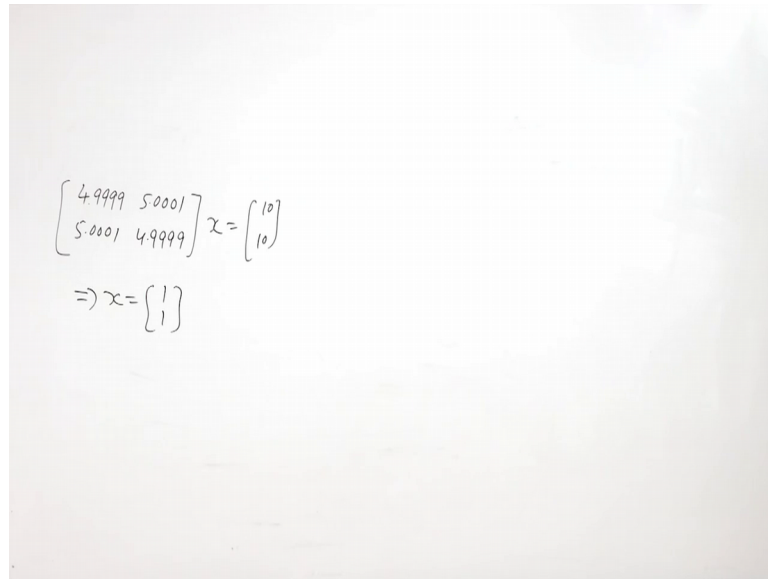 [4.9999 5.0001
5.0001 4.9999] x = [10
10]
=> x = [1
1]